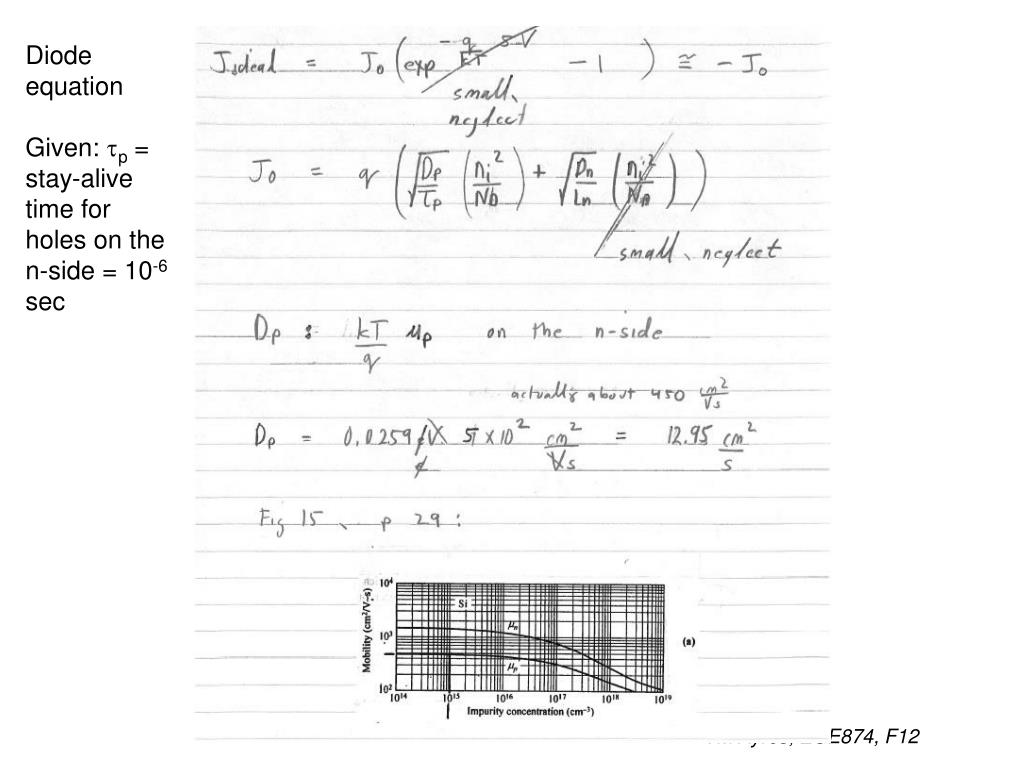 Diode
equation
Given: τp =
stay-alive
time for
holes on the
n-side = 10-6
sec
= J0 (exp -q 5V / kT - 1 ) ≅ - J0
small,
neglect
J0 = q ( √Dp/τp (ni²/ND) + √Dn/Ln (ni²/NA) )
small, neglect
Dp = kT/q μp on the n-side
actually about 450 cm²/Vs
Dp = 0.0259 5 x 10² cm²/Vs = 12.95 cm²/s
Fig 15, p 29:
Mobility (cm²/V-s)
10⁴
10³
10²
Si
μn
μp
(a)
10¹⁴ 10¹⁵ 10¹⁶ 10¹⁷ 10¹⁸ 10¹⁹
Impurity concentration (cm⁻³)
E874, F12